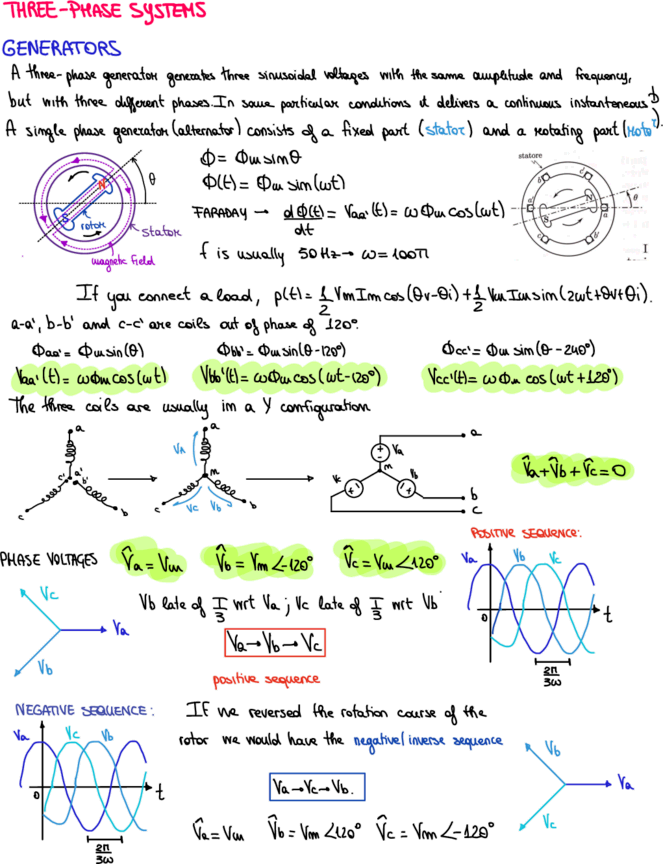 THREE-PHASE SYSTEMS
GENERATORS
A three-phase generator generates three sinusoidal voltages with the same amplitude and frequency,
but with three different phases. In some particular conditions it delivers a continuous instantaneous P
A single phase generator (alternator) consists of a fixed part (stator) and a rotating part (rotor).
θ
N
S
rotor
stator
magnetic field
Φ = Φm sinθ
Φ(t) = Φm sin(ωt)
FARADAY → dΦ(t)/dt = Vaa'(t) = ωΦm cos(ωt)
f is usually 50 Hz → ω = 100π
statore
N
S
θ
I
If you connect a load, p(t) = 1/2 Vm Im cos(θv-θi) + 1/2 Vm Im sin(2ωt+θv+θi).
a-a', b-b' and c-c' are coils out of phase of 120°.
Φaa' = Φm sin(θ) Φbb' = Φm sin(θ-120°) Φcc' = Φm sin(θ-240°)
Vaa'(t) = ωΦm cos(ωt) Vbb'(t) = ωΦm cos(ωt-120°) Vcc'(t) = ωΦm cos(ωt+120°)
The three coils are usually in a Y configuration
a
c' a' b'
c b
a
VA
m
Vc Vb
c b
a
Va
m
Vc Vb
b
c
V̂a + V̂b + V̂c = 0
PHASE VOLTAGES V̂a = Vm V̂b = Vm∠-120° V̂c = Vm∠120°
POSITIVE SEQUENCE:
Va Vb Vc
0 t
2π/3ω
Vc
Va
Vb
Vb late of T/3 wrt Va ; Vc late of T/3 wrt Vb
Va → Vb → Vc
positive sequence
NEGATIVE SEQUENCE:
Va Vc Vb
0 t
2π/3ω
If we reversed the rotation course of the
rotor we would have the negative/inverse sequence
Va → Vc → Vb.
V̂a = Vm V̂b = Vm∠120° V̂c = Vm∠-120°
Vb
Va
Vc